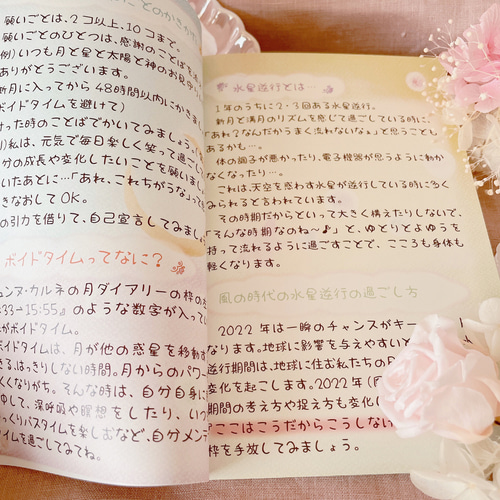 願いごとは、2コ以上、10コまで。
願いごとのひとつは、感謝のことばを
例)いつも月と星と太陽と神のお見守り
ありがとうございます。
新月に入ってから48時間以内にかきま
ボイドタイムを避けて)
った時のことばでかいてみましょう。
)私は、元気で毎日楽しく笑って過ご
分の成長や変化したいことを願いまし
いたあとに…「あれ、これちがうな」って
きなおしてOK。
の引力を借りて、自己宣言してみまし
ボイドタイムってなに?
ュンヌ・カルネの月ダイアリーの枠の
:33→15:55』のような数字が入ってい
がボイドタイム。
ボイドタイムは、月が他の惑星を移動す
はっきりしない時間。月からのパワー
くなりがち。そんな時は、自分自身に
中して、深呼吸や瞑想をしたり、いつ
っくりバスタイムを楽しむなど、自分メンテ
タイムを過ごしてみてね。
水星逆行とは…
1年のうちに2・3回ある水星逆行。
新月と満月のリズムを感じて過ごしている時に、
「あれ?なんだかうまく流れないなぁ」と思うことも
あるかも…。
体の調子が悪かったり、電子機器が思うように動か
なくなったり…。
これは、天空を惑わす水星が逆行している時に多く
みられると言われています。
その時期だからといって大きく構えたりしないで、
「そんな時期なのね~♪」と、ゆとりとよゆうを
持って流れるように過ごすことで、こころも身体も
軽くなります。
風の時代の水星逆行の過ごし方
2022年は一瞬のチャンスがキー
なります。地球に影響を与えやすいと
逆行期間は、地球に住む私たちの
変化を起こします。2022年
期間の考え方や捉え方も変化し
『ここはこうだからこうしない
枠を手放してみましょう。